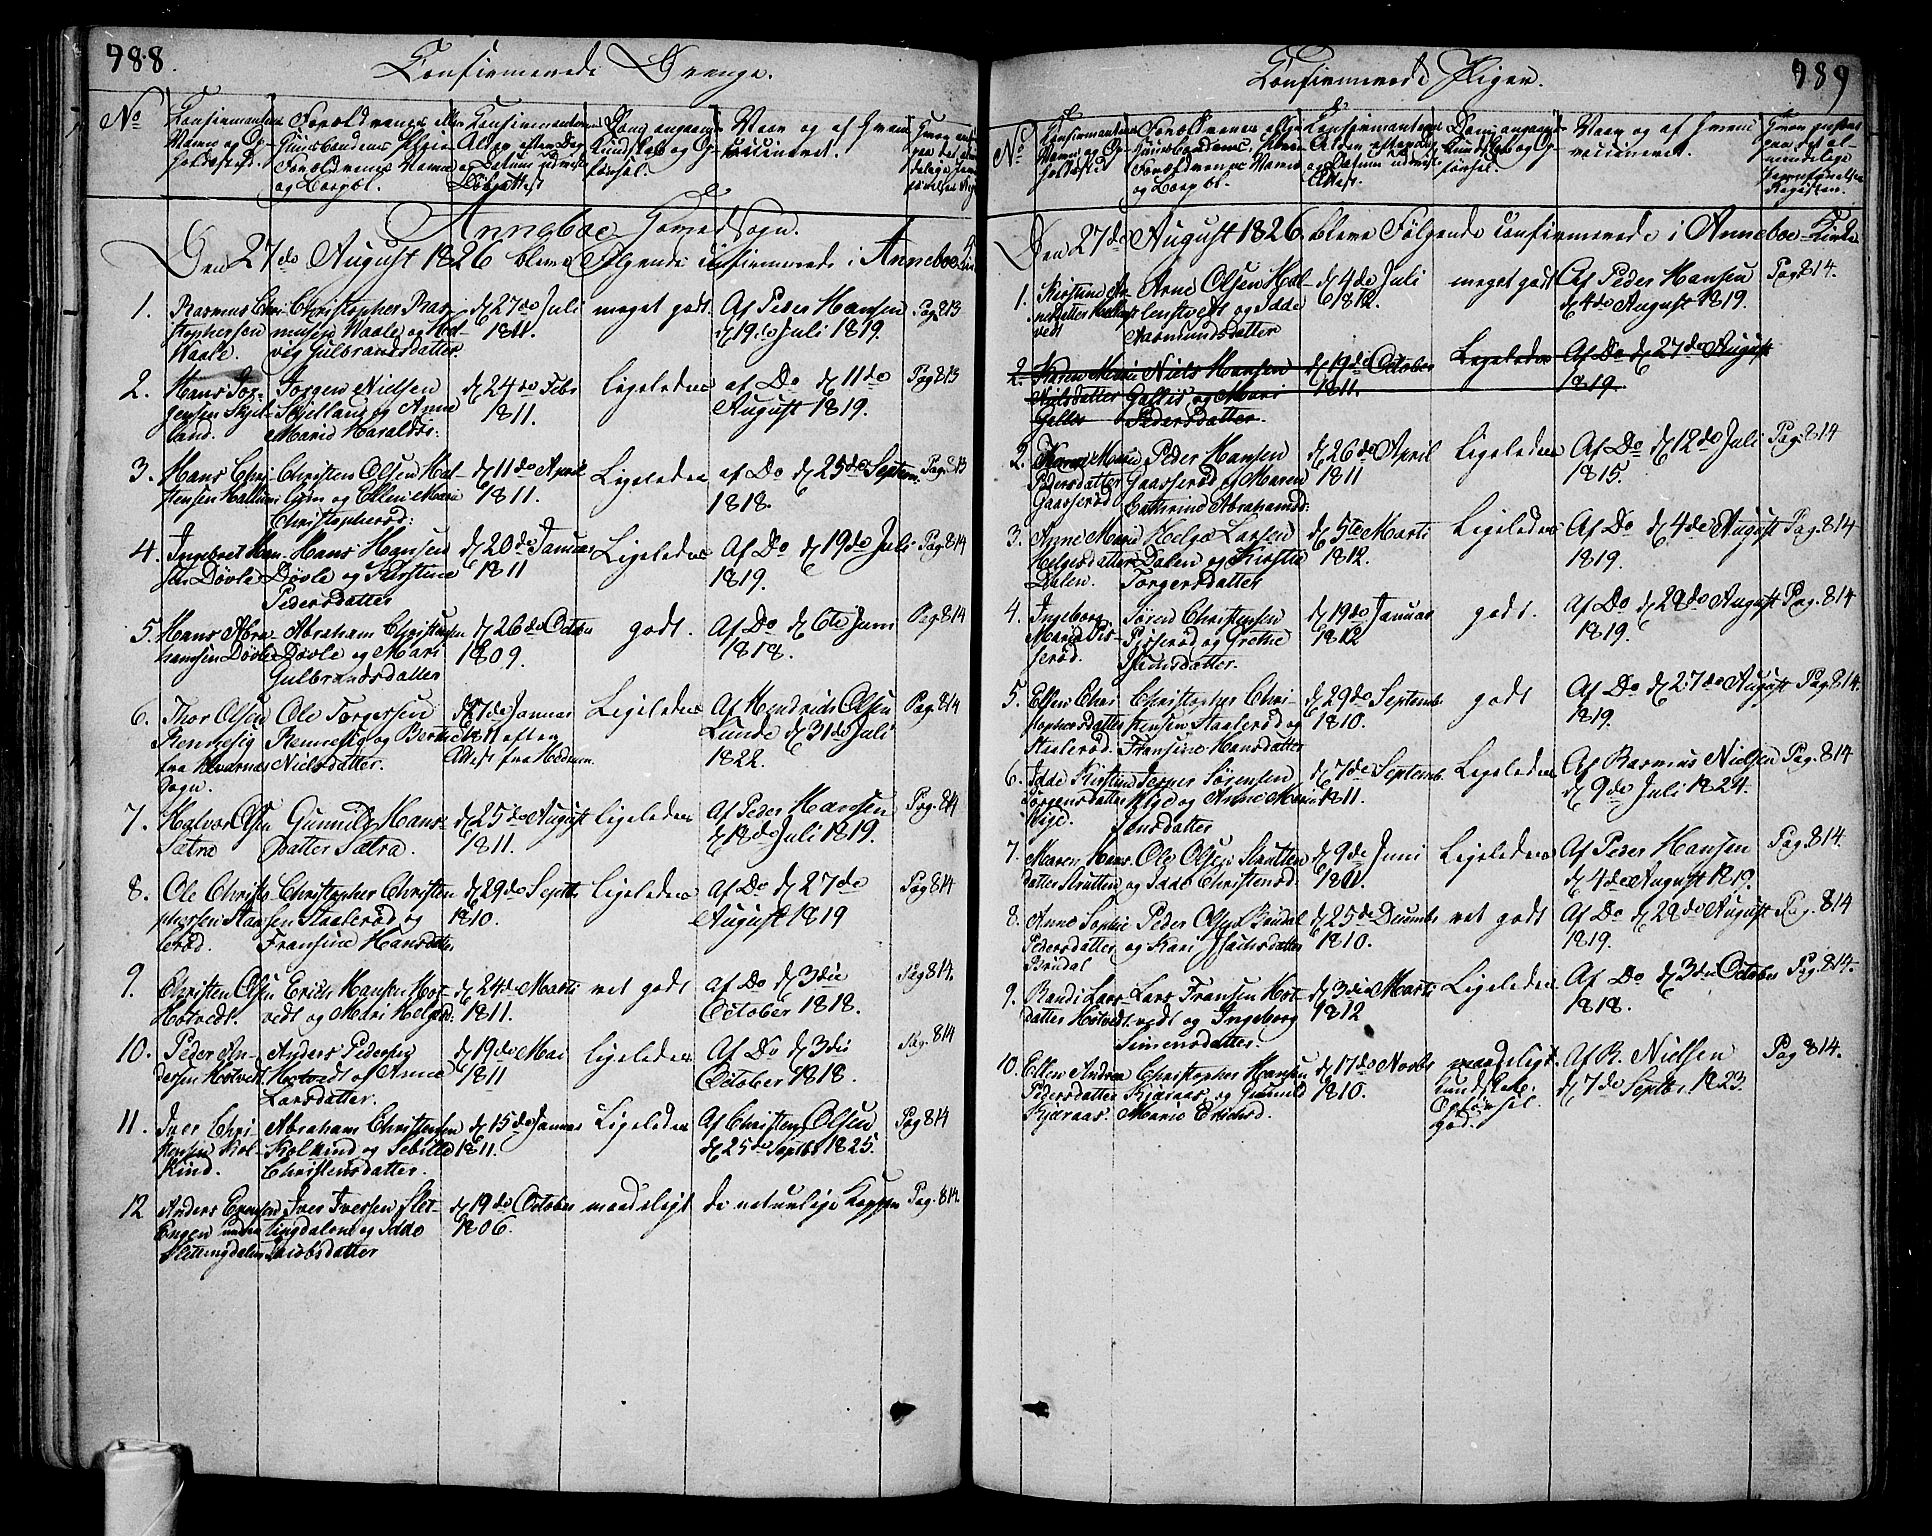 788
Confirmerede Drenge.
No
Confirmantens Navn og Opholdssted.
Forældrenes eller Huusbondens Stand Forældrenes Navne og Borgel.
Confirmantens Alder efter Dag og Datum udviist Døbeattest
Dom angaaende Kundskab og Opførsel.
Naar og af hvem vaccineret.
Anneboe Hovedsogn.
Den 27de August 1826 bleve Følgende confirmerede i Anneboe
1. Rasmus Christophersen Waale. Christophersen Rasmusen Waale og Hedvig Gulbrandsdatter. d 27de Juli 1811. meget godt. Af Peder Hansen d 19de Juli 1819. Pag 813
2. Hans Jørgensen Skjelland. Jørgen Nielsen Skjelland og Anne Marie Haraldsd: d 24de Febr 1811. ligeledes af Do d 11de August 1819. Pag 813
3. Hans Christensen Christen Olsen og Ellen Marie Christophersd: d 11de April 1811. Ligeledes af Do d 25de Septem. 1818. Pag 813
4. Ingebret Hansen Døvle Hans Hansen Døvle og Kirstine Pedersdatter d 20de Januar 1811 Ligeledes Af Do d 19de Juli 1819. Pag 814
5. Hans Abrahamsen Døvle Abraham Christensen Døvle og Mari Gulbrandsdatter d 26de Octbr 1809. godt. Af Do d 6te Juni 1818. Pag 814
6. Thor Olsen Rennesig fra Hvarnes Sogn. Ole Torgersen Rennesig og Berthe Nielsdatter. d 7de Januar 1811 efter Attest fra Hedrum. Ligeledes Af Hendrich Olsen Lunde d 31de Juli 1822. Pag 814
7. Halvor Olsen Sætra Gunnild Hansdatter Sætra. d 25de August 1811. ligeledes Af Peder Hansen d 12de Juli 1819. Pag. 814
8. Ole Christophersen Staalerød. Christopher Christensen Staalerød og Fransine Hansdatter d 29de Septb 1810. ligeledes Af Do d 27de August 1819 Pag 814
9. Christen Olsen Hotvedt. Erich Hansen Hotvedt og Mari Helgesd: d 24de Marti 1811. ret godt Af Do d 3die October 1818. Pag 814.
10. Peder Andersen Hotvedt. Anders Pedersen Hotvedt og Anne Larsdatter. d 19de Mai 1811 ligeledes Af Do d 3die October 1818. Pag. 814
11. Iver Christensen Kolkind. Abraham Christensen Kolkind og Sebille Christensdatter. d 15de Januar 1811. Ligeledes Af Christen Olsen d 25de Septbr 1825. Pag 814
12 Anders Evensen Engen under Slettingdalen Iver Iversen Slettingdalen og Idde Jacobsdatter d 19de October 1806. maadeligt de naturlige Kopper Pag. 814
789
Confirmerede Piger.
No
Confirmantens Navn og Opholdssted
Forældrenes eller Huusbondens, Forældrenes Navne og Borgel.
Confirmantens Alder efter Dag og Datum udviist Attest.
Dom angaaende Kundskab og Opførsel.
Naar og af hvem vaccineret.
Hvor anført paa det almindelige Jevnførelses Register.
Den 27de August 1826 bleve Følgende confirmerede i Anneboe Kirke
1. Kirstine Arnesdatter Arne Olsen og Idde Aasmundsdatter d 4de Juli 1812. meget godt Af Peder Hansen d 4de August 1819. Pag 814.
2. Karen Marie Nielsdatter Gallis Niels Hansen Gallis og Mari Pedersdatter d 19de October 1811. Ligeledes Af Do d 27de August 1819
2. Karen Marie Pedersdatter Gaaserød Peder Hansen Gaaserød og Maren Cathrine Abrahamsd: d 26de April 1811 Ligeledes Af Do d 12de Juli 1815. Pag: 814
3. Anne Marie Helgesdatter Dalen. Helge Larsen Dalen og Kirstie Torgersdatter d 5te Marti 1812. Ligeledes Af Do d 4de August 1819. Pag. 814
4. Ingeborg Marie Søren Christensen og Grethe d 19de Januar 1812 godt. Af Do d 28de August 1819. Pag. 814
5. Ellen Christophersdatter Staalerød. Christopher Christensen Staalerød og Fransine Hansdatter d 29de Septemb. 1810. godt Af Do d 27de August 1819. Pag. 814.
6. Idde Kirstine Jørgensdatter Kige. Sørensen Kige og Anne Marie Jonsdatter d 7de Septemb. 1811. Ligeledes Af Rasmus Nielsen d 9de Juli 1824. Pag. 814
7. Maren Hansdatter Strutten Ole Olsen Strutten og Idde Christensd: d 9de Juni 1811. Ligeledes Af Peder Hansen d 4de August 1819. Pag. 814.
8. Anne Sophie Pedersdatter Bredal Peder Olsen Bredal og Kari Isachsdatter d 25de Decembr 1810. ret godt Af Do d 28de August 1819. Pag. 814
9. Randi Larsdatter Hotvedt. Lars Fransen Hotvedt og Ingeborg Simensdatter. d 3die Marti 1812 Ligeledes Af Do d 3die October 1818. Pag. 814.
10. Ellen Andrea Pedersdatter Kjæraas. Christopher Hansen Kjæraas, og Gunnild Marie Erichsd. d 17de Novbr 1810. maadeligt Kundskab. Opførsel god. Af R. Nielsen d 7de Septbr. 1823. Pag 814.